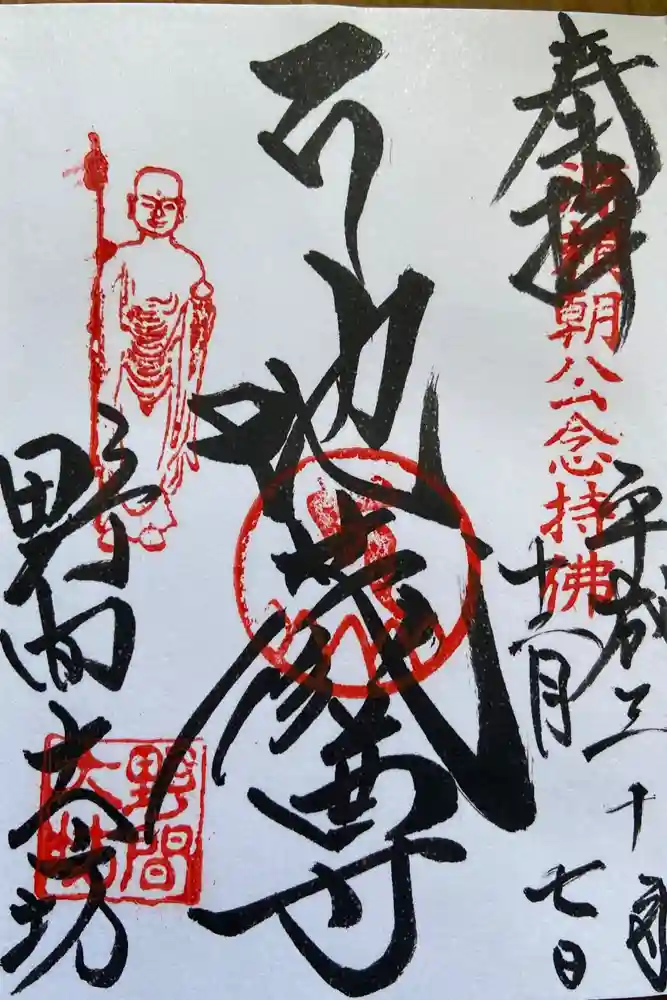 奉拝
源頼朝公念持佛
平成三十年
十二月
七日
地蔵尊
野間大坊
野間
大坊